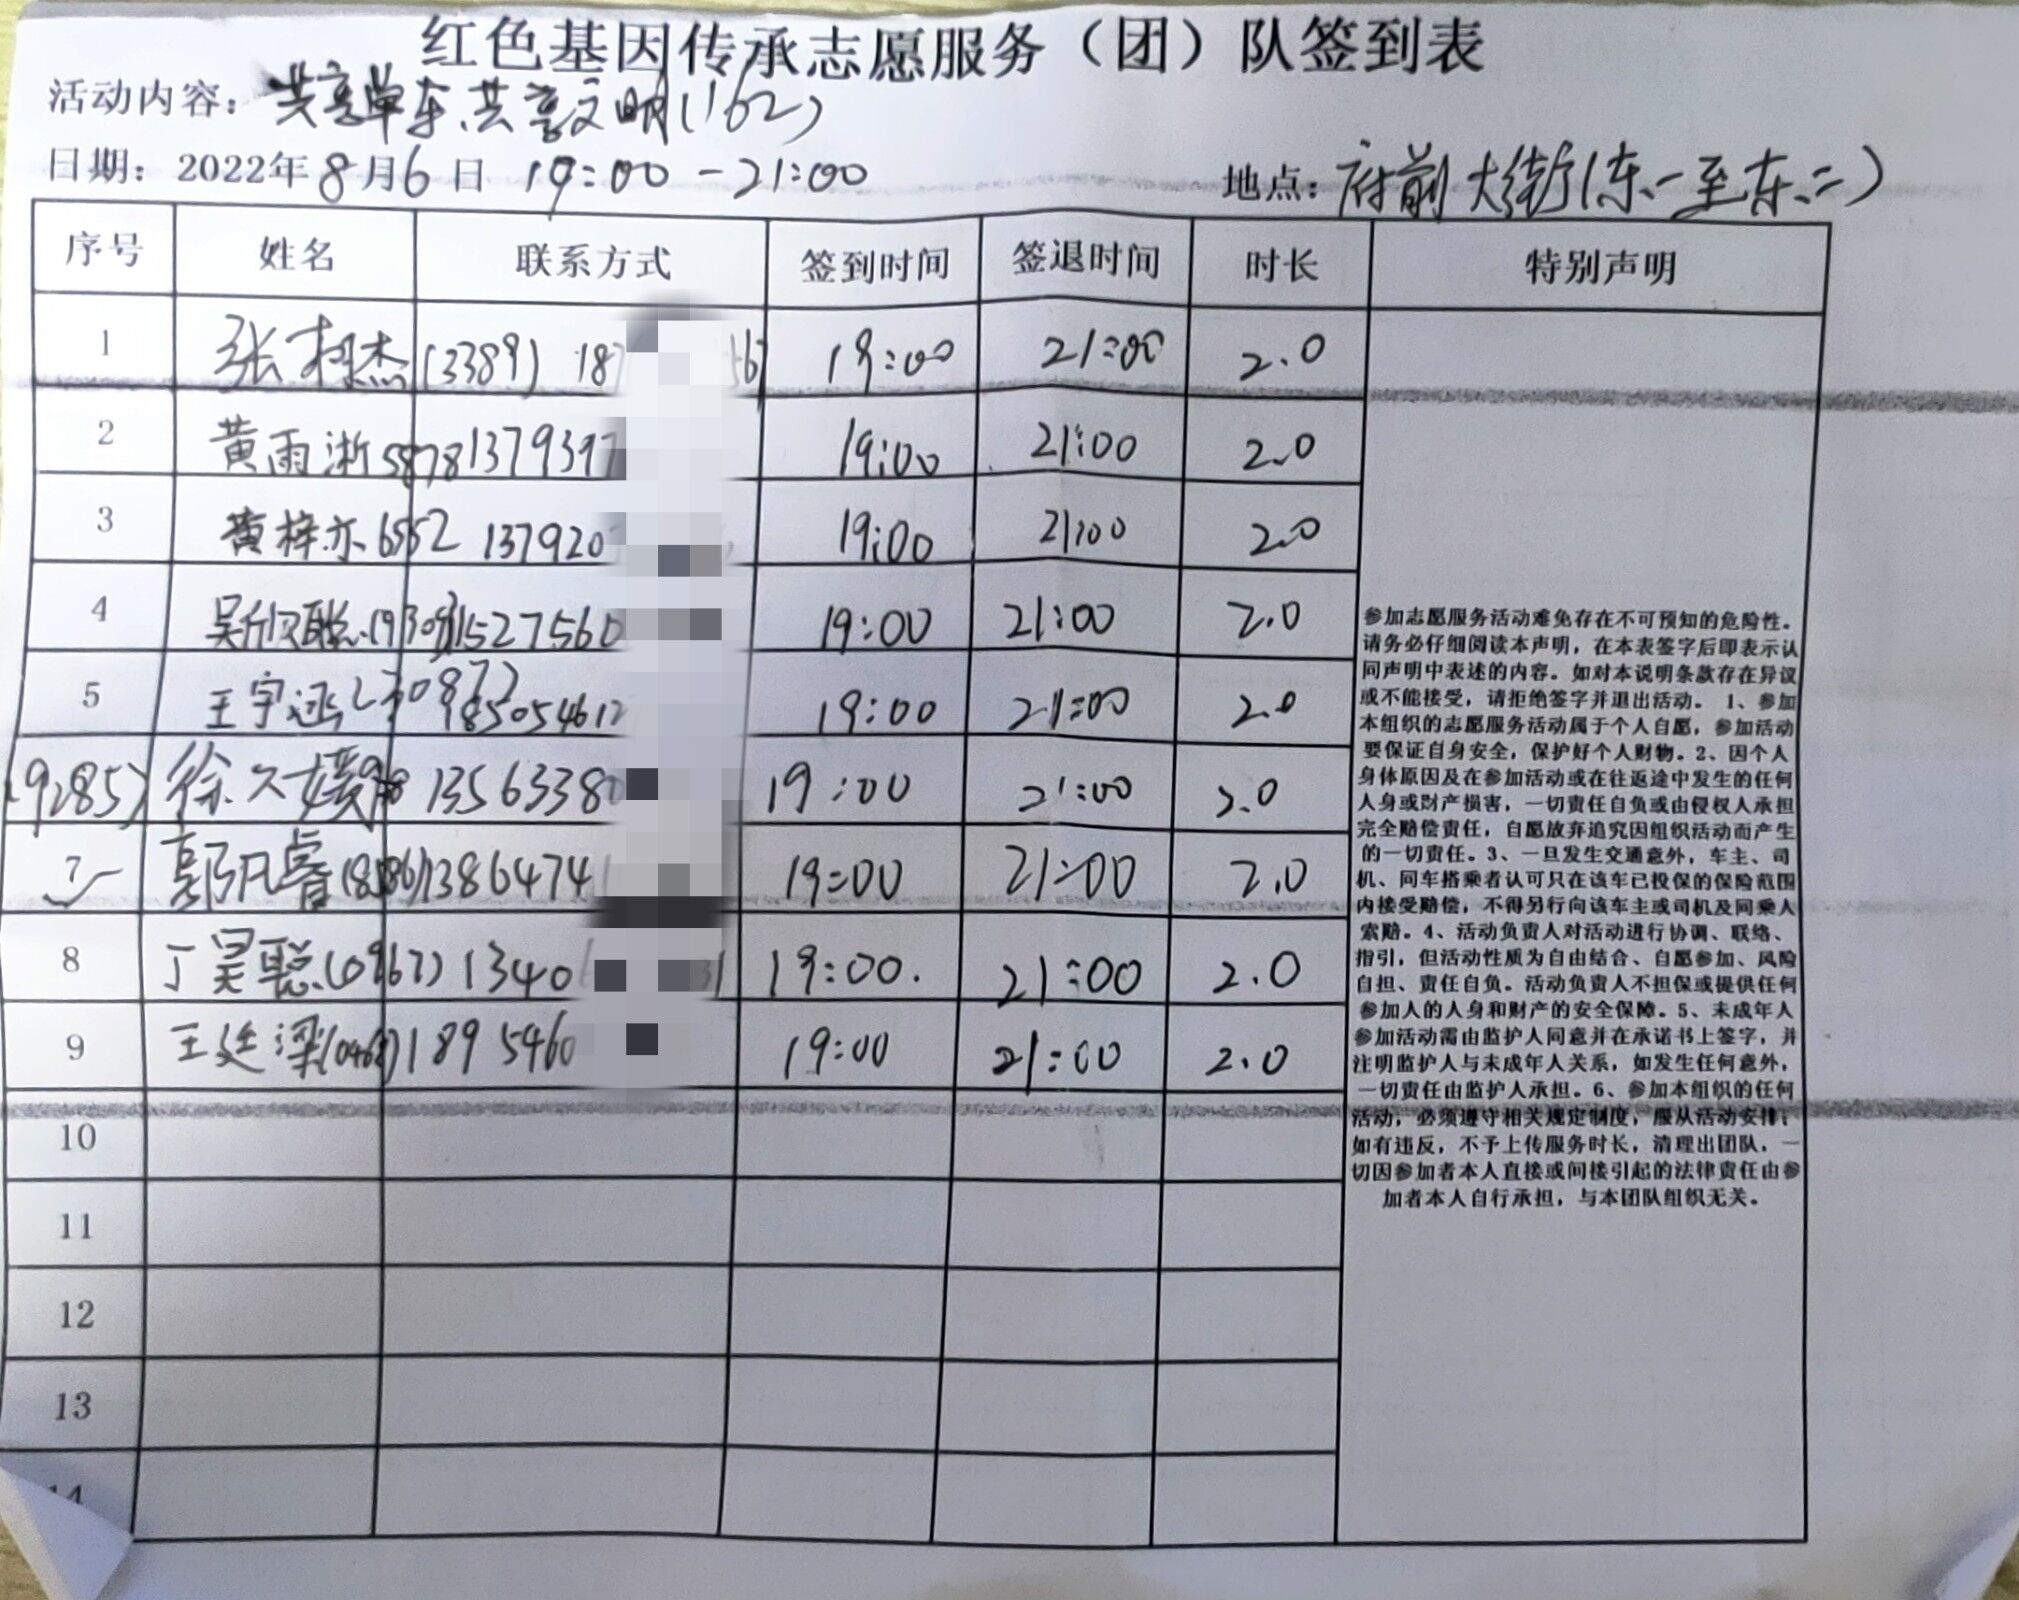 红色基因传承志愿服务（团）队签到表
活动内容：共享单车、共享文明(162)
日期：2022年8月6日 19:00-21:00 地点：府前大街(东一至东二)
序号 姓名 联系方式 签到时间 签退时间 时长 特别声明
1 张 杰 (3389) 18 19:00 21:00 2.0
2 黄雨浙 5878 1379397 19:00 21:00 2.0
3 黄梓亦 6552 137920 19:00 21:00 2.0
4 吴欣聪 1527560 19:00 21:00 2.0
5 王宇涵 185054612 19:00 21:00 2.0
(9285) 徐久媛 13563380 19:00 21:00 2.0
7 郭凡睿 13864741 19:00 21:00 2.0
8 丁昊聪(0967) 1340 31 19:00. 21:00 2.0
9 王廷深(0468) 1895460 19:00 21:00 2.0
10
11
12
13
14
参加志愿服务活动难免存在不可预知的危险性。
请务必仔细阅读本声明，在本表签字后即表示认
同声明中表述的内容。如对本说明条款存在异议
或不能接受，请拒绝签字并退出活动。 1、参加
本组织的志愿服务活动属于个人自愿，参加活动
要保证自身安全，保护好个人财物。2、因个人
身体原因及在参加活动或在往返途中发生的任何
人身或财产损害，一切责任自负或由侵权人承担
完全赔偿责任，自愿放弃追究因组织活动而产生
的一切责任。3、一旦发生交通意外，车主、司
机、同车搭乘者认可只在该车已投保的保险范围
内接受赔偿，不得另行向该车主或司机及同乘人
索赔。4、活动负责人对活动进行协调、联络、
指引，但活动性质为自由结合、自愿参加、风险
自担、责任自负。活动负责人不担保或提供任何
参加人的人身和财产的安全保障。5、未成年人
参加活动需由监护人同意并在承诺书上签字，并
注明监护人与未成年人关系，如发生任何意外，
一切责任由监护人承担。6、参加本组织的任何
活动，必须遵守相关规定制度，服从活动安排；
如有违反，不予上传服务时长，清理出团队，一
切因参加者本人直接或间接引起的法律责任由参
加者本人自行承担，与本团队组织无关。